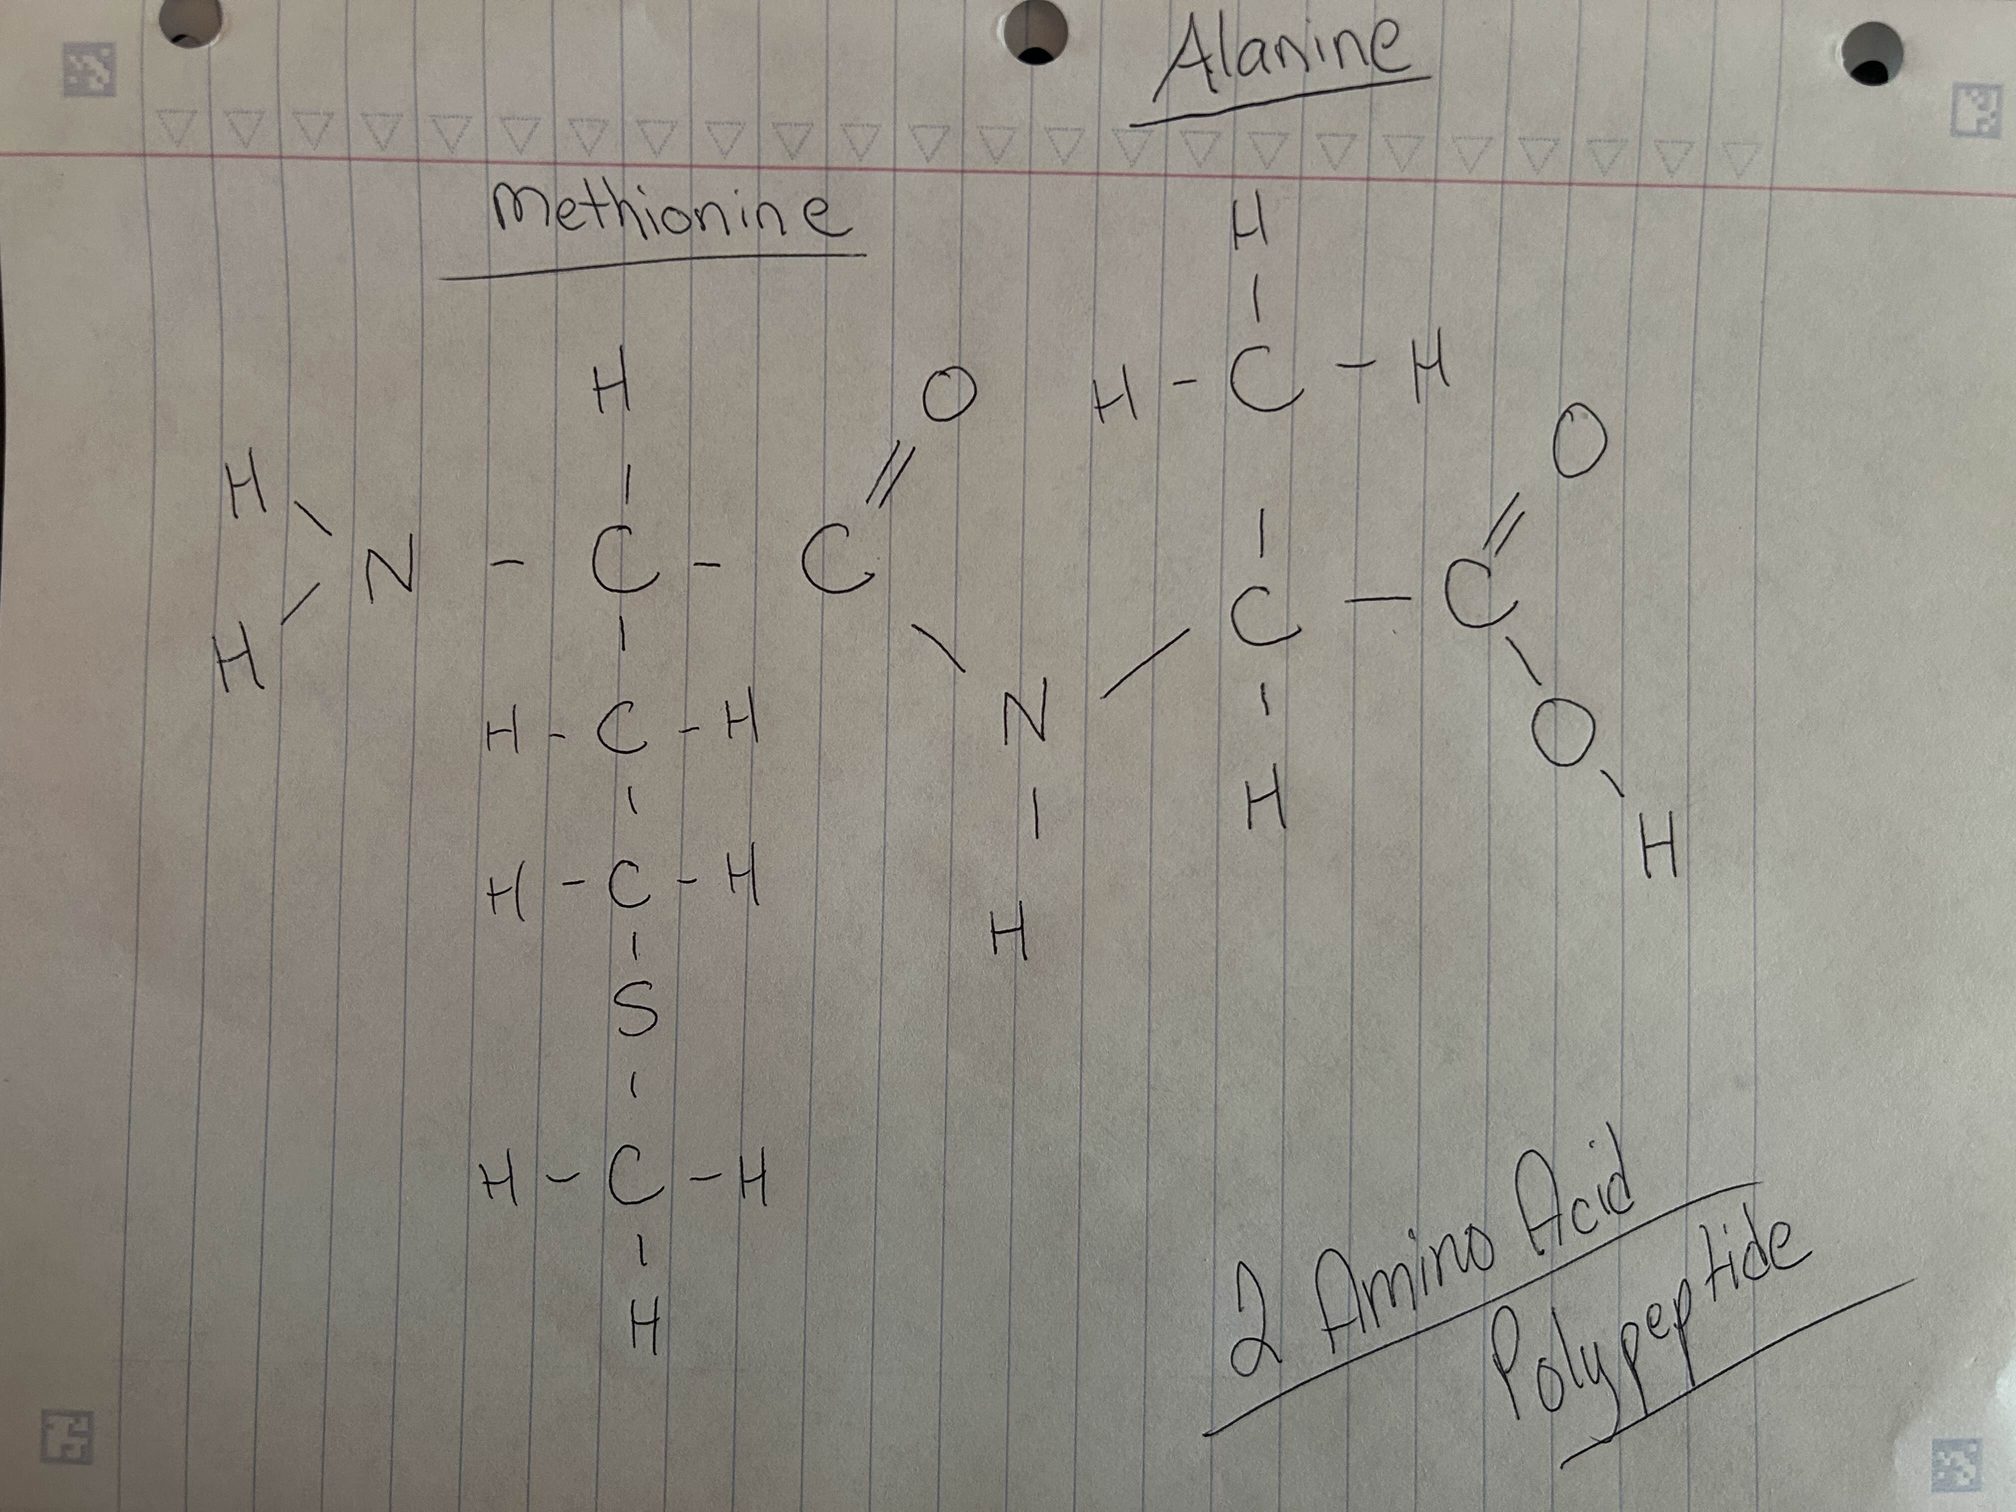 Alanine
Methionine
H
H O H - C - H
H O
H N - C - C C - C
H N O
H - C - H H H
H - C - H H
S
H - C - H
H
2 Amino Acid
Polypeptide